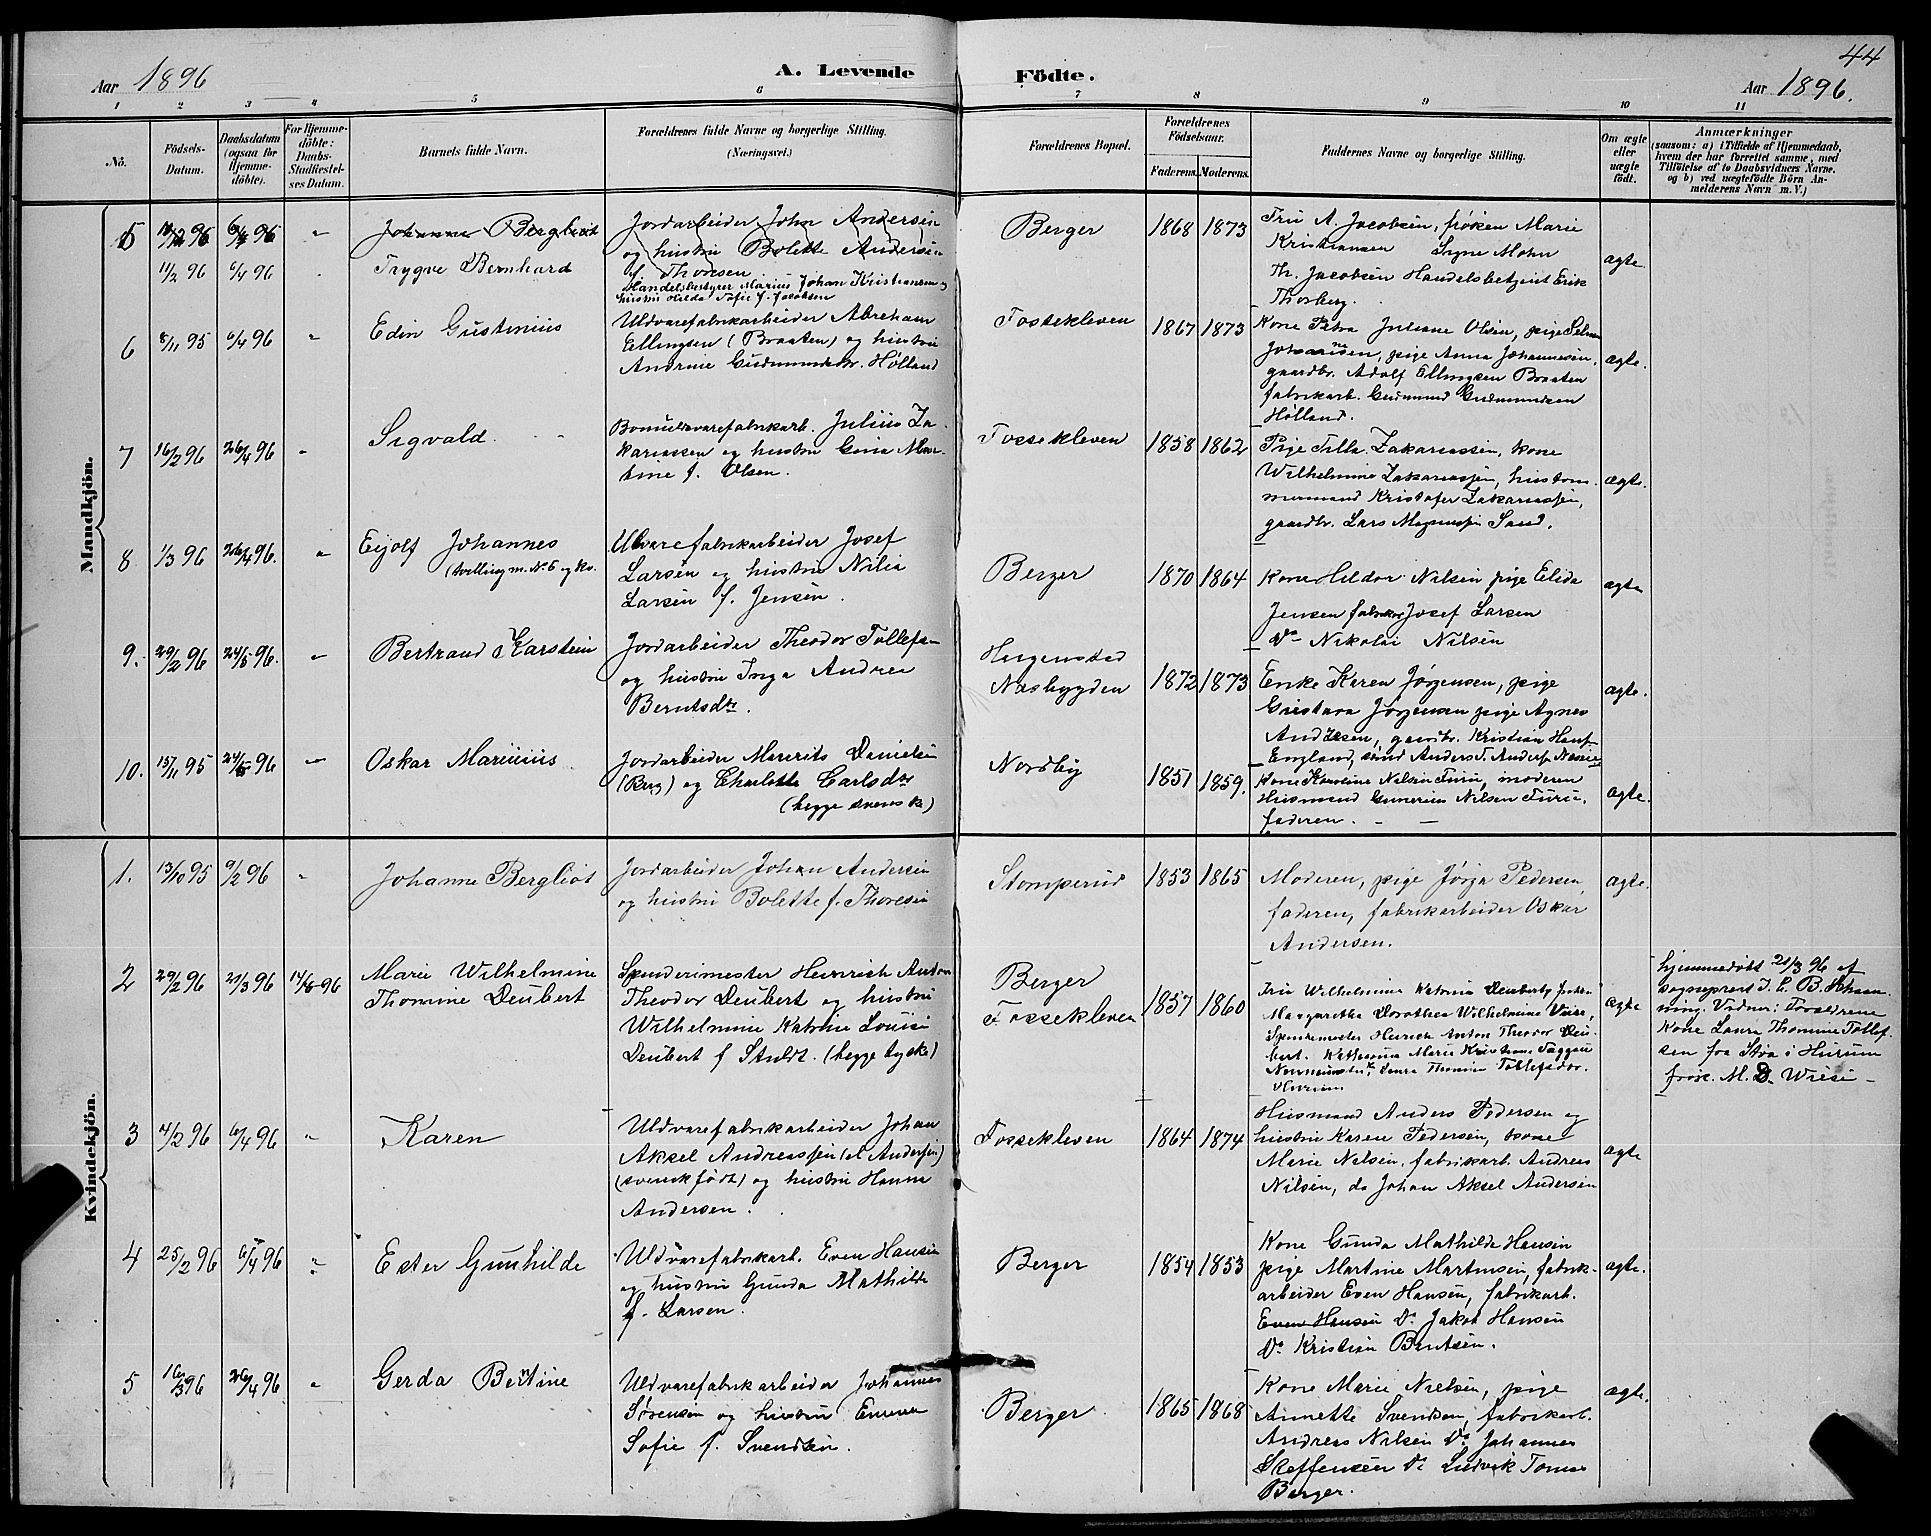 44
Aar 1896
A. Levende
Födte.
Aar 1896.
1 2 3 4 5 6 7 8 9 10 11
No.
Födsels-
Datum.
Daabsdatum
(ogsaa for
Hjemme-
döbte).
For Hjemme-
döbte:
Daabs-
Stadfæstel-
ses Datum.
Barnets fulde Navn.
Forældrenes fulde Navne og borgerlige Stilling.
(Næringsvei.)
Forældrenes Bopæl.
Forældrenes
Födselsaar.
Faderens. Moderens.
Faddernes Navne og borgerlige Stilling.
Om ægte
eller
uægte
født.
Anmærkninger
(saasom: a) i Tilfælde af Hjemmedaab,
hvem der har forrettet samme, med
Tilföielse af to Daabsvidners Navne.
og b) ved uægtefödte Börn An-
melderens Navn m. V.)
Mandkjön.
5
96
6/4 96
"
Johanne Bergliot
11/2 96
6/4 96
Trygve Bernhard
Jordarbeider John Andersen
og hustru Bolette Andersen
f. Thoresen
Handelsbestyrer Marius Johan Kristiansen og
hustru Hilda Sofie f. Jacobsen
Berger
1868
1873
Fru A. Jacobsen, frøken Marie
Kristiansen Signe Mohn
Th. Jacobsen Handelsbetjent Erik
Thorberg.
ægte.
6
8/11 95
6/4 96
"
Edin Gustinius
Uldvarefabrikarbeider Abraham
Ellingsen (Braaten) og hustru
Andrine Gudmundsdr. Hølland
Fossekleven
1867
1873
Kone Petra Juliane Olsen, pige Selma
Johannesen, pige Anna Johannesen,
gaardbr. Adolf Ellingsen Braaten
fabrikarb. Gudmund Gudmundsen
Hølland.
ægte.
7
16/2 96
26/4 96
"
Sigvald
Bomuldsvarefabrikarb. Julius Za-
kariassen og hustru Gina Mar-
tine f. Olsen.
Fossekleven
1858
1862
Pige Tilla Zakariassen, kone
Wilhelmine Zakariassen, hustom-
mermand Kristofer Zakariassen,
gaardbr. Lars Magnussen Sand.
ægte.
8
1/3 96
26/4 96.
"
Eyolf Johannes
(tvilling m. No. 6 og kv.
Ulvarefabrikarbeider Josef
Larsen og hustru Nilia
Larsen f. Jensen.
Berger
1870
1864
Kone Hildor Nilsen pige Elida
Jensen fabrikarb Josef Larsen
Do Nikolai Nilsen
ægte
9.
29/2 96
24/5 96.
"
Bertrand Karstein
Jordarbeider Theodor Tollefsen
og hustru Inga Andrea
Berntsdr.
Næsbygden
1872
1873
Enke Karen Jørgensen, pige
Gustava Jørgensen pige Agnes
Andersen, gaardbr. Kristian Hans.
England, Anders T. Anders.
ægte.
10.
15/11 95
24/5 96
"
Oskar Mariinius
Jordarbeider Mauritz Danielsen
(Berg) og Charlotte Carlsdr
(begge svenske)
Nordby
1851
1859.
Kone Karoline Nilsen Furu, moderen
Husmand Gunerius Nilsen Furu,
faderen. - -
ægte.
Kvindekjön.
1.
13/10 95
9/2 96
"
Johanne Bergliot
Jordarbeider Johan Andersen
og hustru Bolette f. Thoresen
Stomperud
1853
1865
Moderen, pige Jørga Pedersen,
faderen, fabrikarbeider Oskar
Andersen.
ægte.
2
29/2 96
21/3 96
14/5 96
Marie Wilhelmine
Thomine Deubert
Spinderimester Heinrich Anton
Theodor Deubert og hustru
Wilhelmine Katrine Louise
Deubert f Studt. (begge tyske)
Berger
Fossekleven
1857
1860
Fru Wilhelmine Katrine Deubert,
Margaretha Dorothea Wilhelmine Wiese,
Spindemester Hinrich Anton Theodor Deu-
bert. Marie Kristiane
Neumünster, Laura Thomine Tollefsdr.
Hurum
ægte
hjemmedøbt 21/3 96 af
sogneprest
Vidner: Forældrene
Kone Laura Thomine Tollef-
sen fra Støa i Hurum
frøk. M. D. Wiese -
3
4/2 96
6/4 96
"
Karen
Uldvarefabrikarbeider Johan
Aksel Andreassen (el Andersen)
(svenskfødt) og hustru Hanna
Andersen.
Fossekleven
1864
1874
Husmand Anders Pedersen og
hustru Karen Pedersen, kone
Marie Nilsen, fabrikarb. Andreas
Nilsen, do Johan Aksel Andersen
ægte
4
25/2 96
6/4 96
"
Ester Gunhilde
Uldvarefabrikarb. Even Hansen
og hustru Gunda Mathilde
f. Larsen.
Berger
1854
1853
Kone Gunda Mathilde Hansen
pige Martine Martinsen, fabrik-
arbeider Even Hansen, fabrikarb.
Even Hansen Do Jakob Hansen
Do Kristian Berntsen.
ægte.
5
16/3 96
26/4 96
"
Gerda Berntine
Uldvarefabrikarbeider Johannes
Sørensen og hustru Emma
Sofie f. Svendsen.
Berger
1865
1868
Kone Marie Nielsen, pige
Annette Svendsen, fabrikarb.
Andreas Nilsen Do Johannes
Steffensen Do Ludvik
Berger.
ægte.